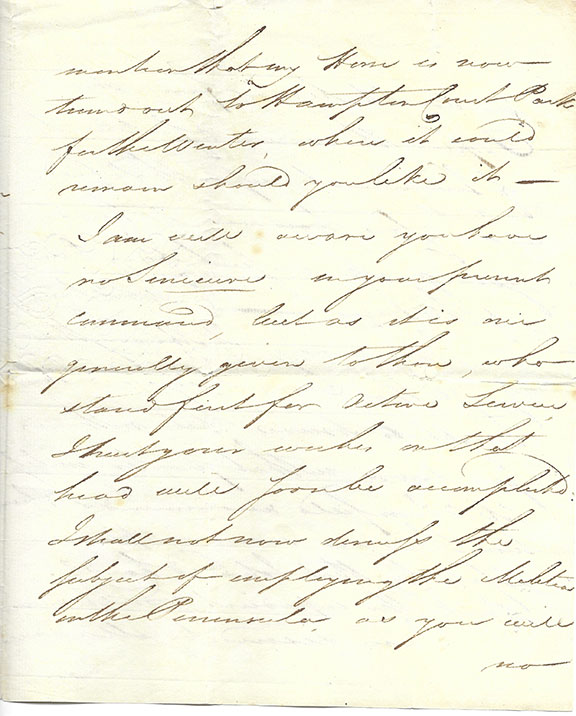 mention that my Horse is now
turned out to Hampton Court Park
for the Winter, where it could
remain should you like it —
I am well aware you have
no Sinecure in your present
command, but as it is
generally given to those, who
stand first for Active Service
I trust your wishes on that
head will soon be accomplished.
I shall not now discuss the
subject of employing the Militia
in the Peninsula, as you will
no